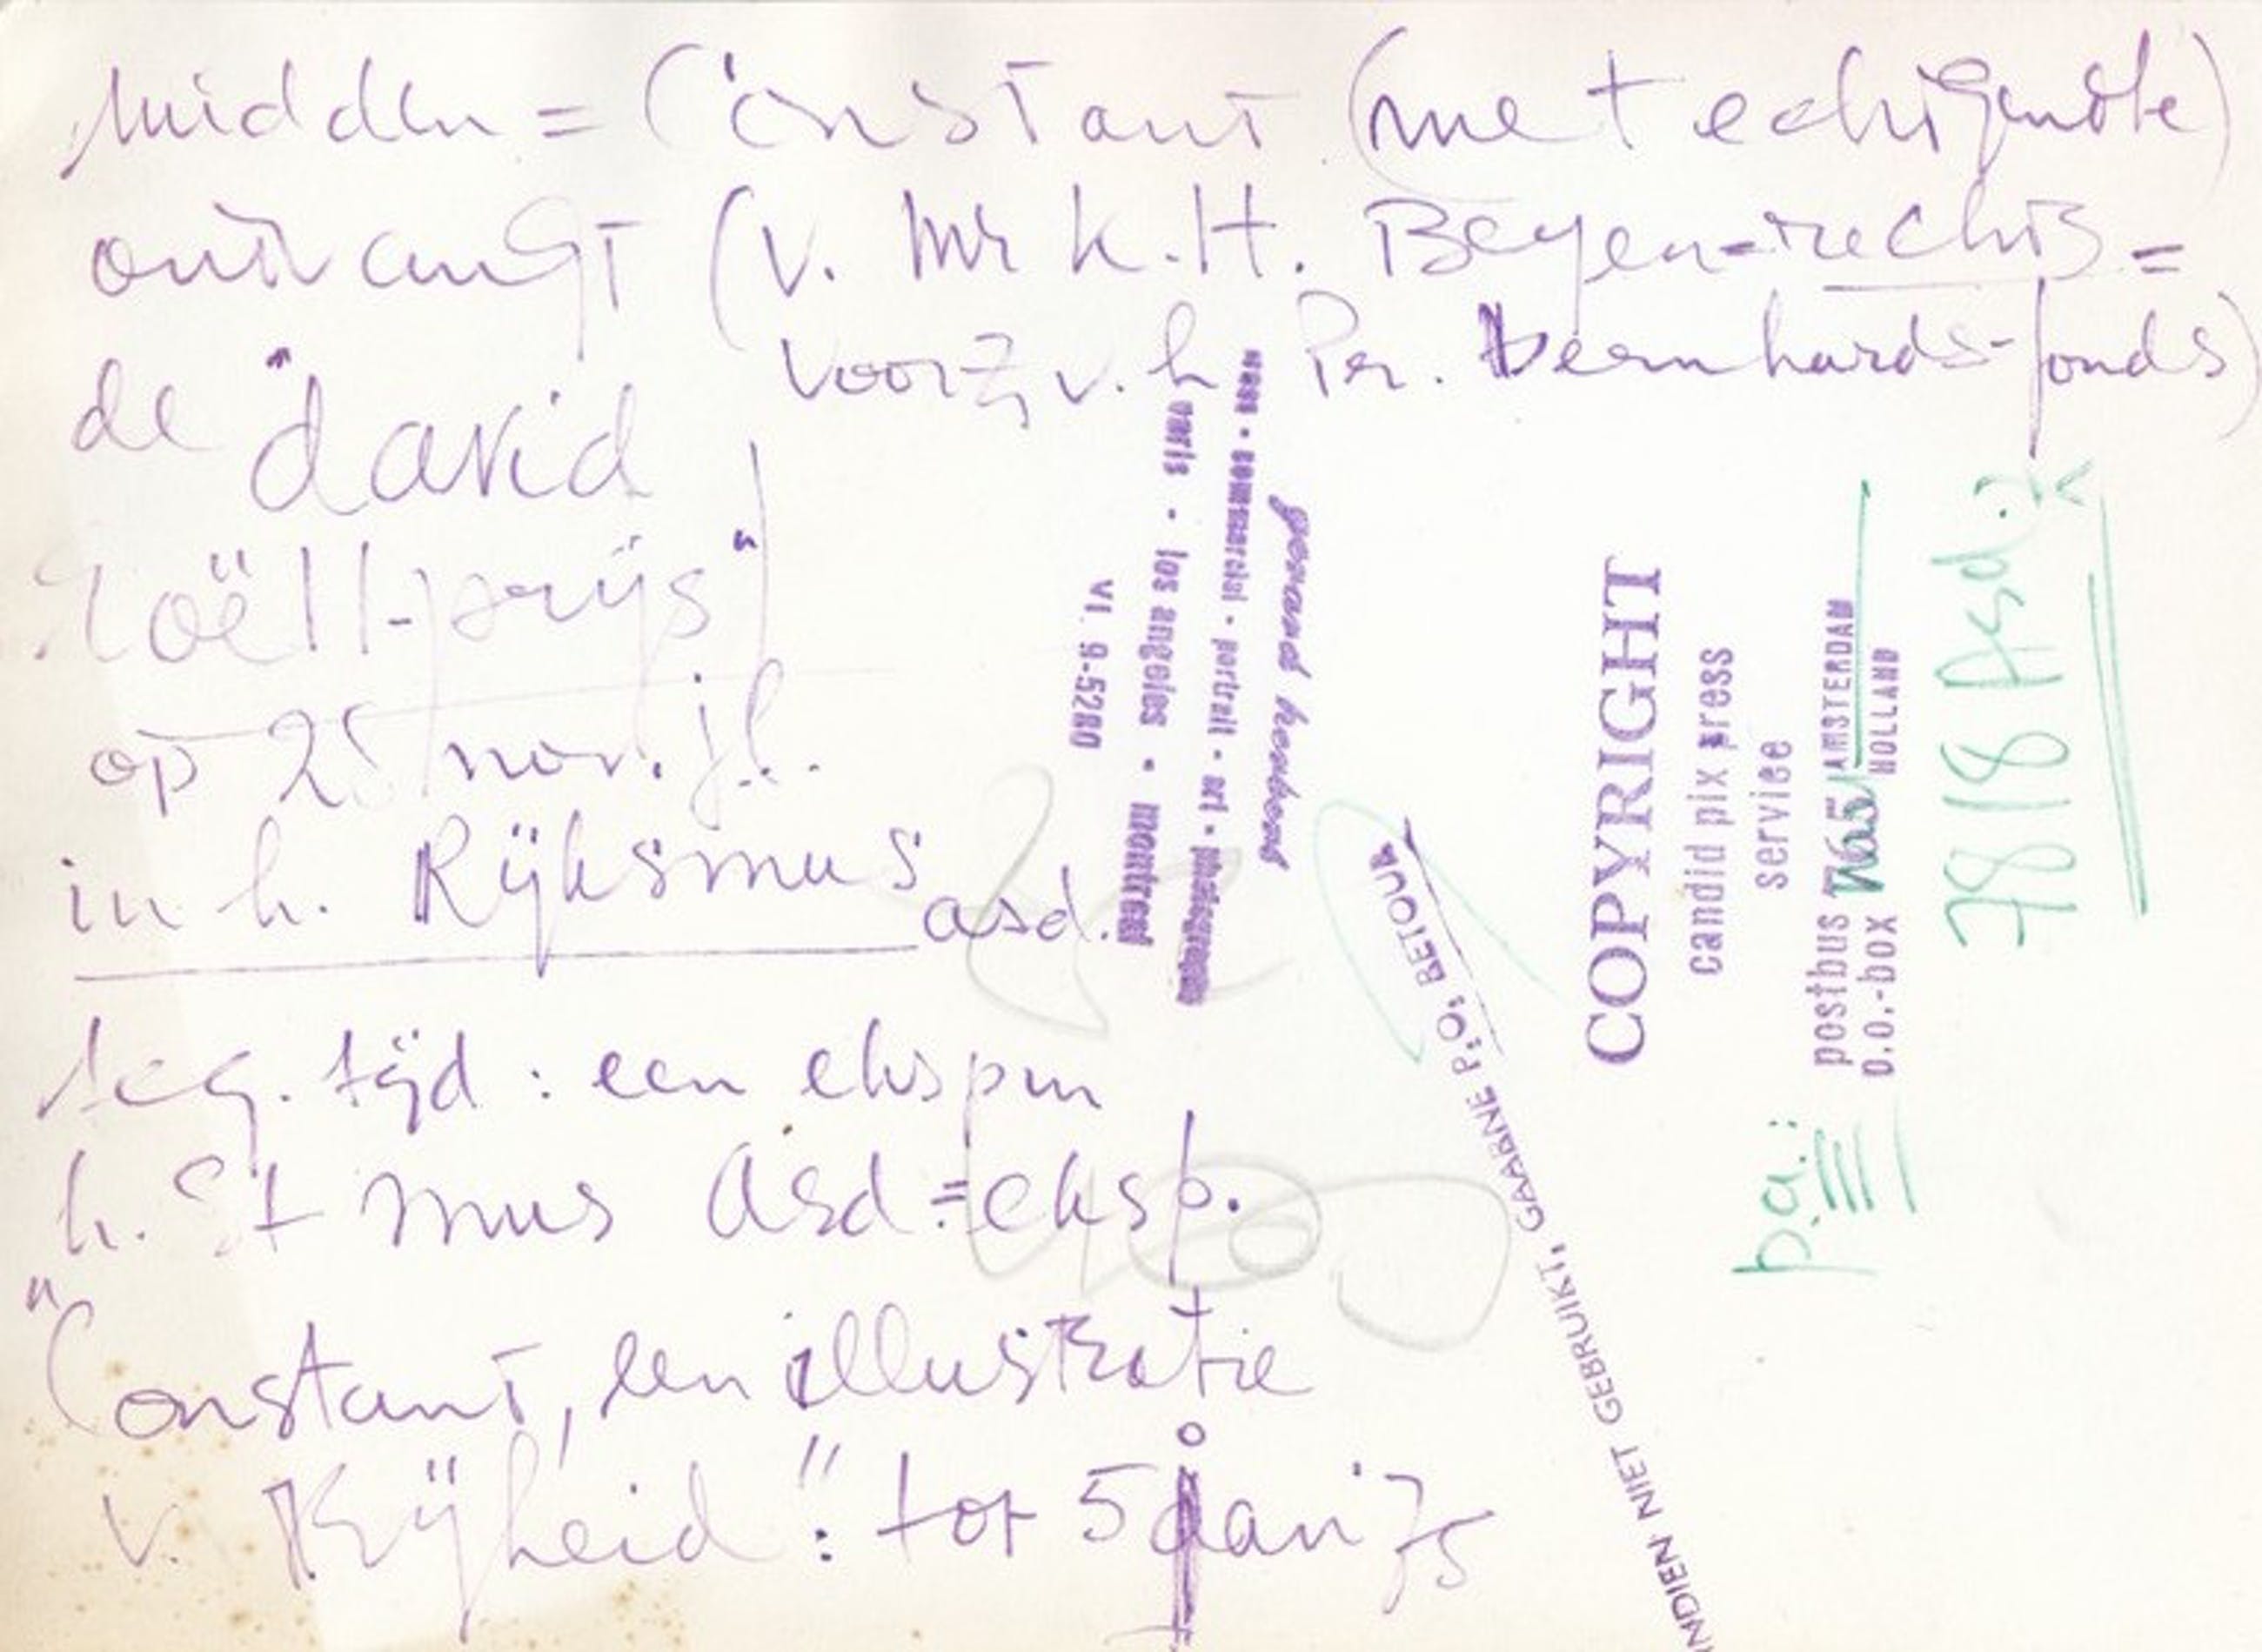 Midden = Constant (met echtgenote)
ontvangt (v. Mr K.H. Beyen-rechts =
voorz. v. h Pr. Bernhards-fonds)
de "david
Roëll-prijs"
op 25 nov. j.l.
in h. Rijksmus asd.
teg. tijd: een ekspin
h. St mus Asd = eksp.
"Constant, een illustratie
v. Vrijheid": tot 5 jan '75
gerard
news • commercial • portrait • art • photographs
paris • los angeles • montreal
VI. 9-5280
INDIEN NIET GEBRUIKT, GAARNE P.O. RETOUR
COPYRIGHT
candid pix press
service
postbus AMSTERDAM
p.o.-box HOLLAND
7818 Asd.
pa: